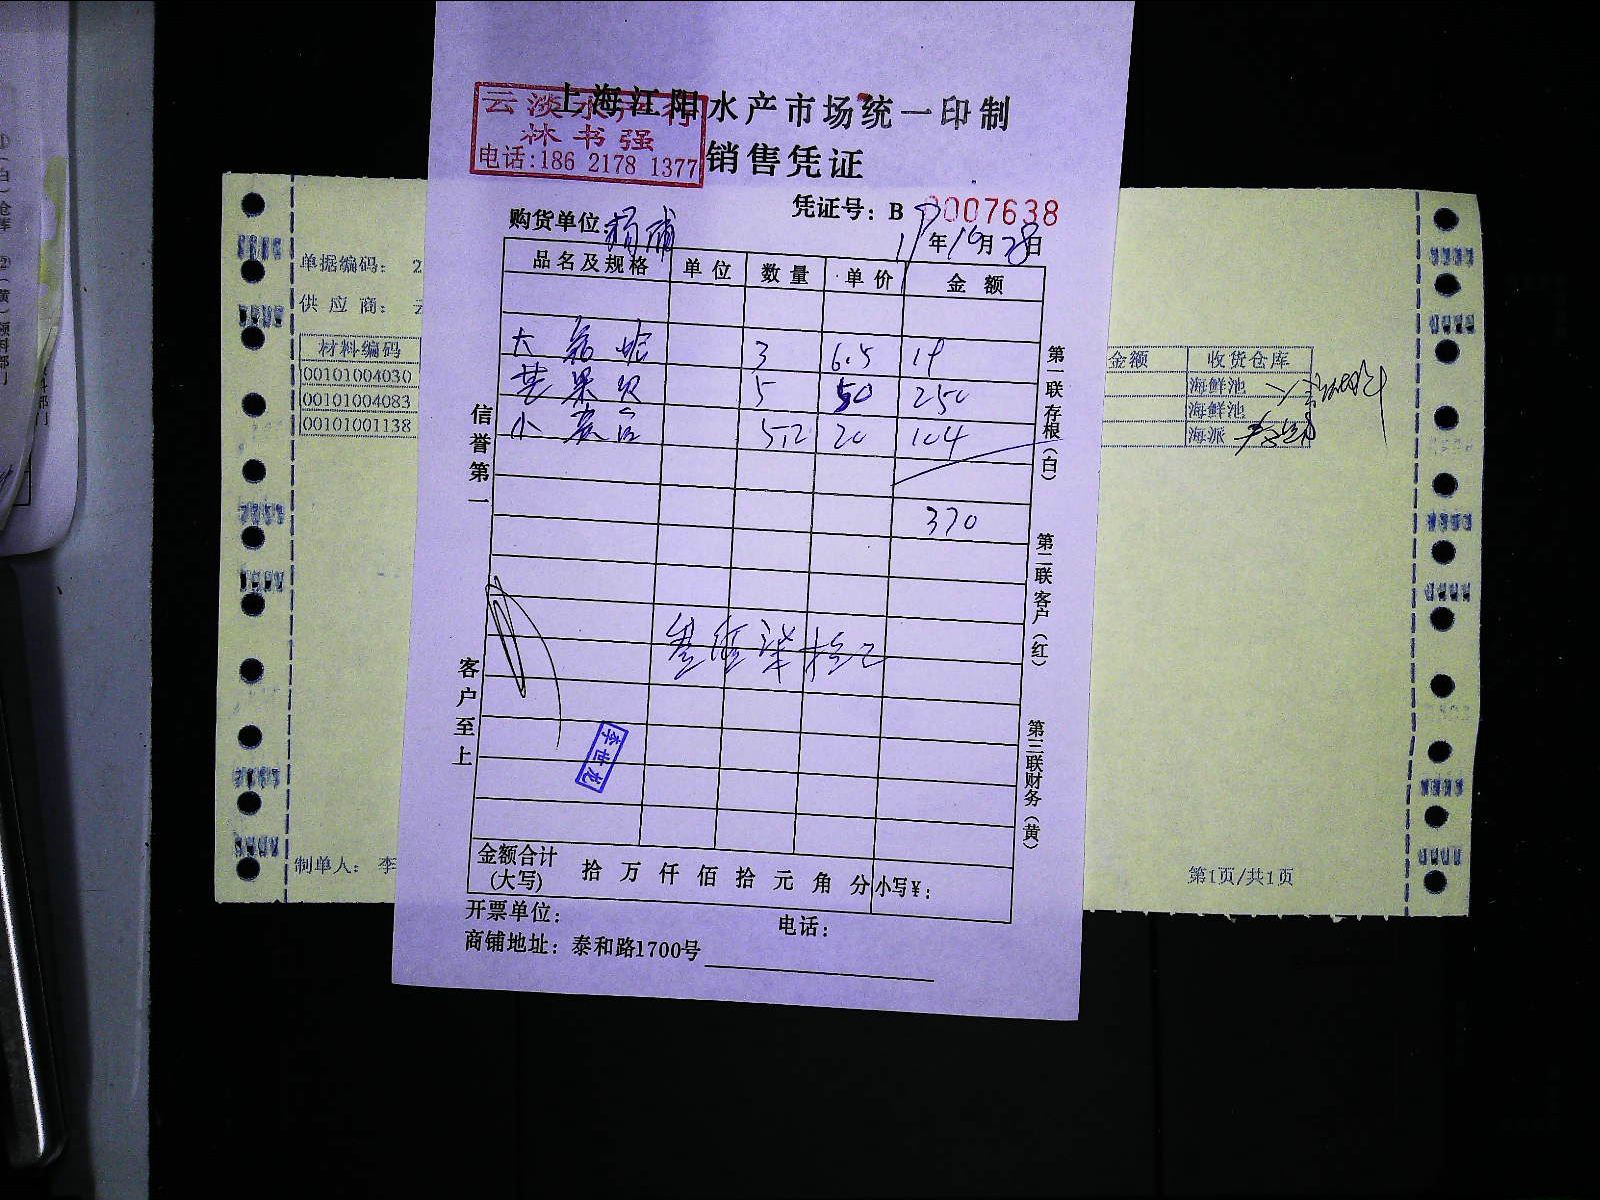 上海江阳水产市场统一印制
云淡水产行
林书强
电话:186 2178 1377
销售凭证
凭证号: B 0007638
购货单位: 杨浦
19年10月28日
品名及规格 单位 数量 单价 金额
大 蛤 3 6.5 19
苹果贝 5 50 250
小 5.2 20 104
370
叁佰柒拾
李世龙
金额合计(大写) 拾 万 仟 佰 拾 元 角 分 小写¥:
开票单位: 电话:
商铺地址: 泰和路1700号
信誉第一
客户至上
第一联存根(白)
第二联客户(红)
第三联财务(黄)
单据编码: 2
供应商: 云
材料编码
00101004030
00101004083
00101001138
制单人: 李
金额 收货仓库
海鲜池
海鲜池
海派
第1页/共1页